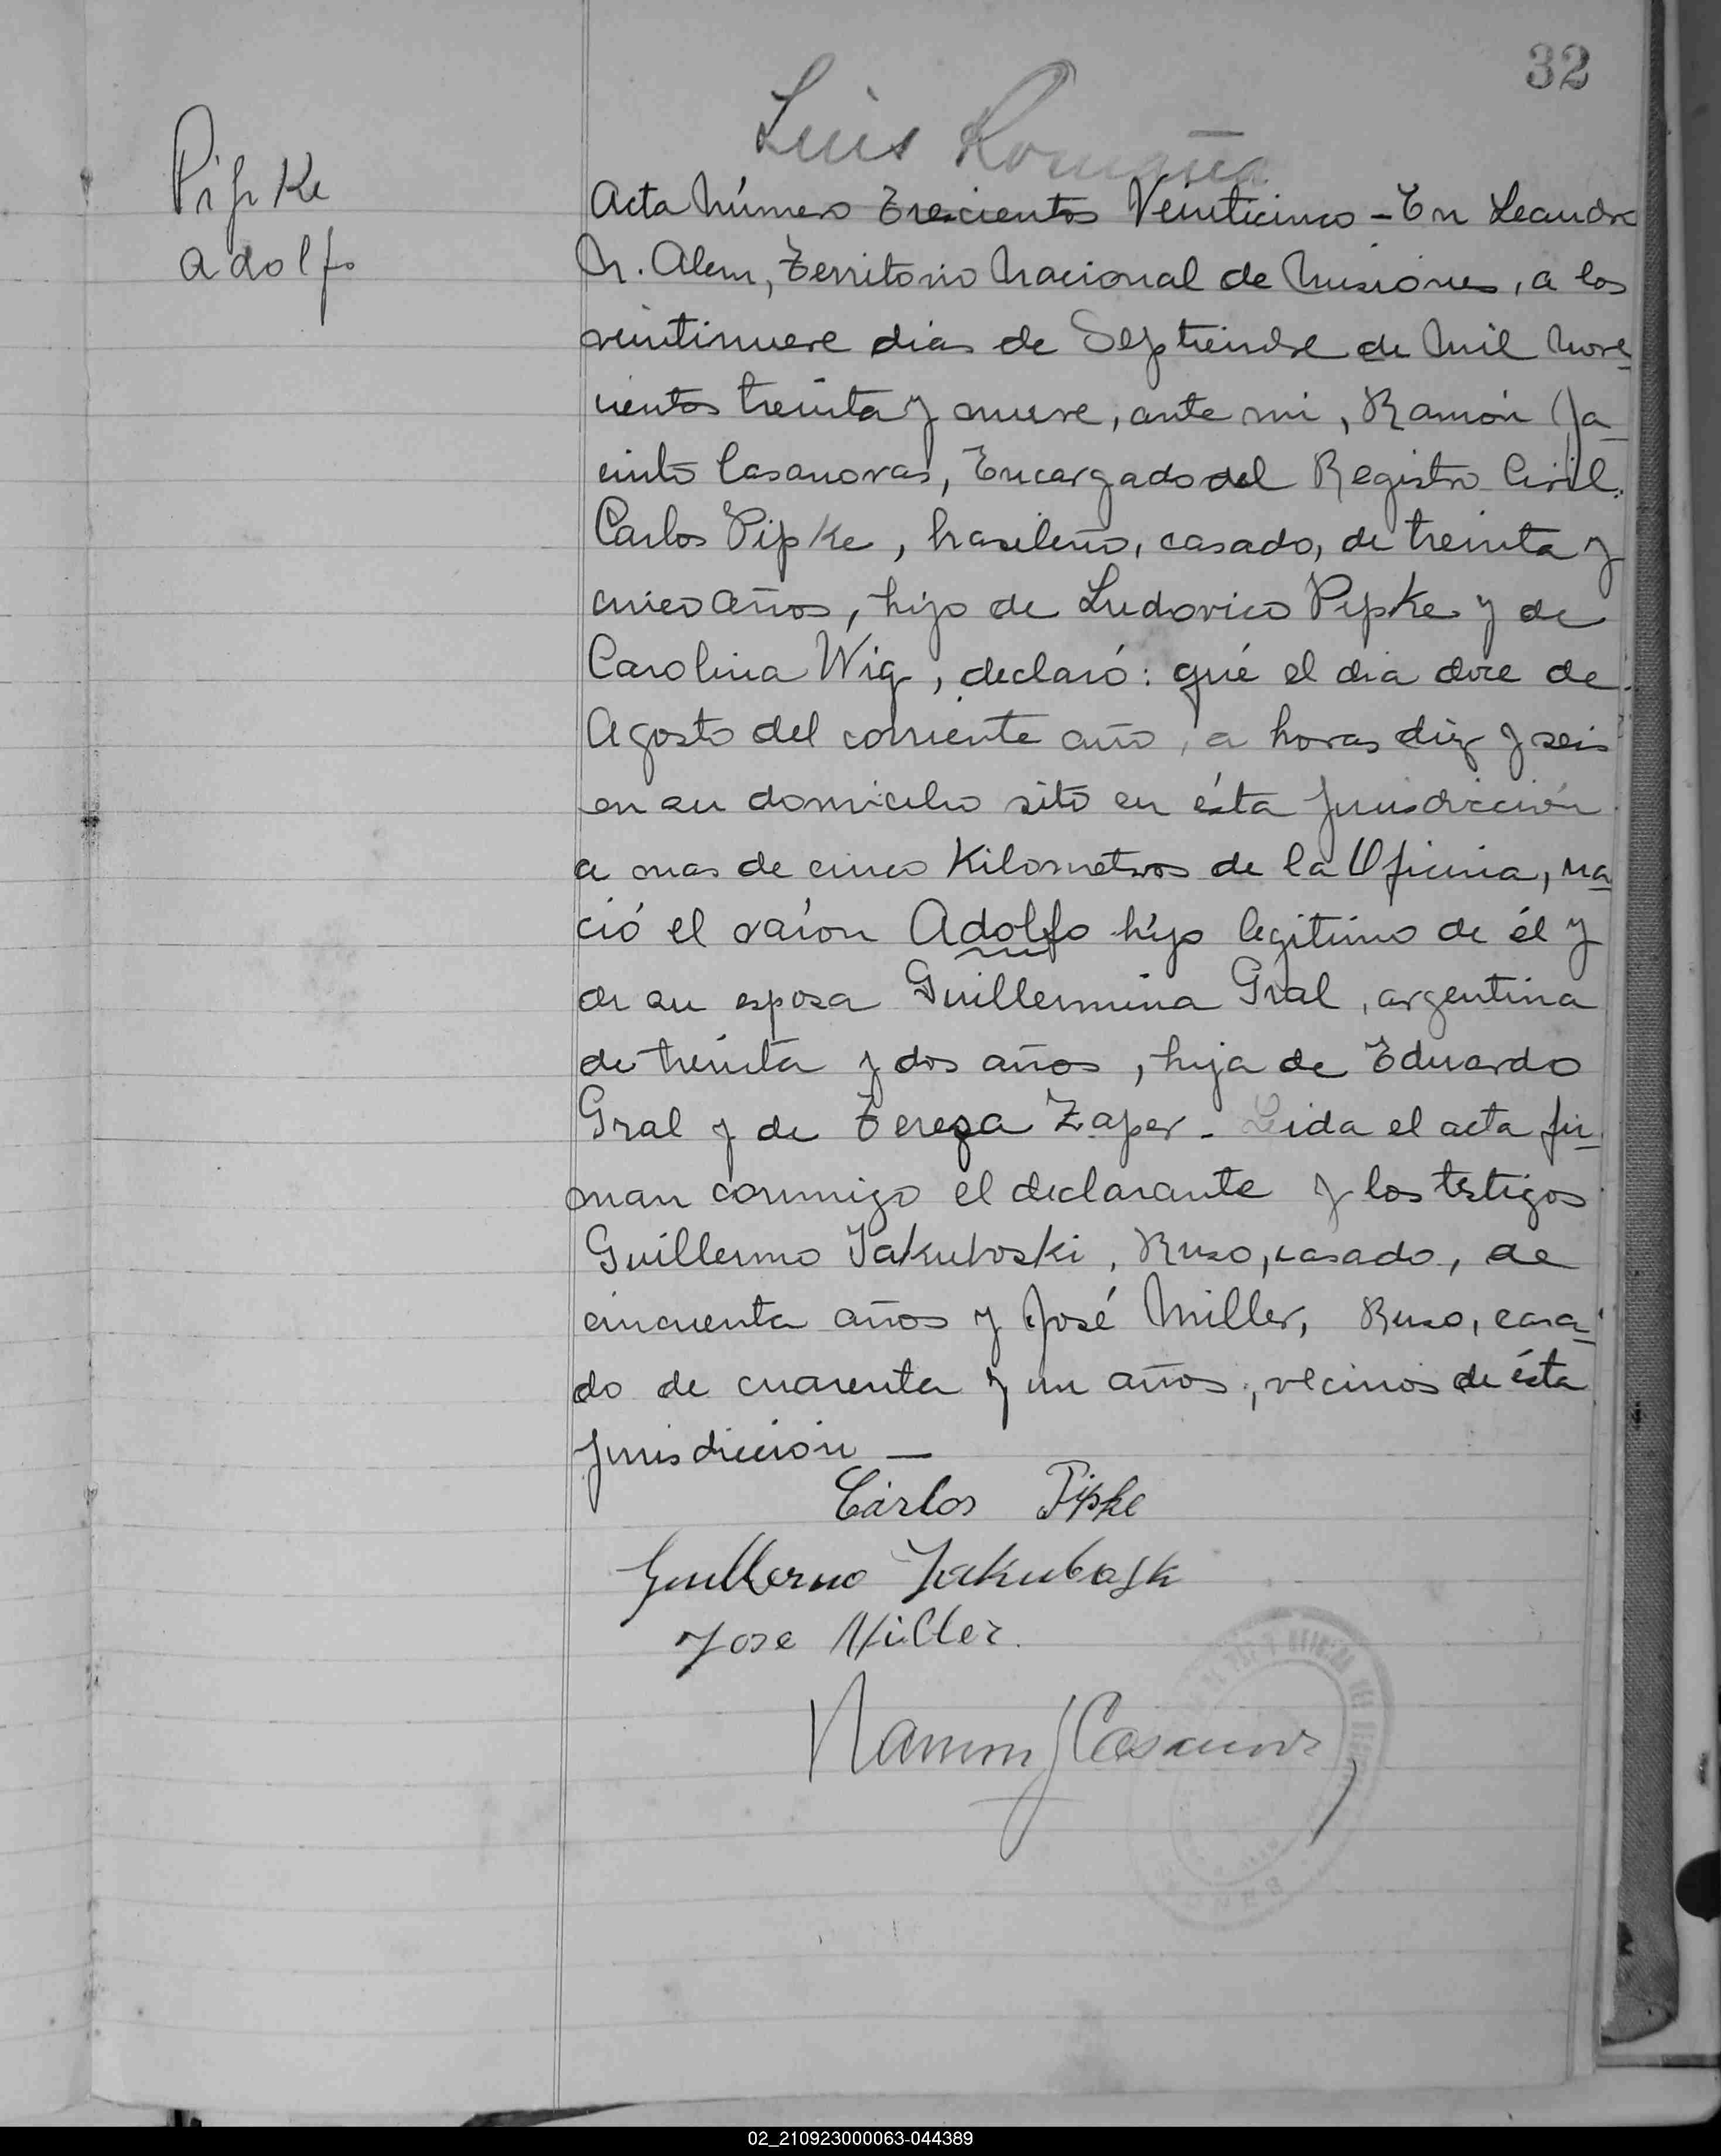 32
Luis Romaña
Pipke
Adolfo
Acta Número Trescientos Veinticinco - En Leandro
N. Alem, Territorio Nacional de Misiones, a los
veintinueve dias de Septiembre de Mil Nove-
cientos treinta y nueve, ante mi, Ramón Ja-
cinto Casanovas, Encargado del Registro Civil.
Carlos Pipke, brasileño, casado, de treinta y
cinco años, hijo de Ludovico Pipke y de
Carolina Wig, declaró: qué el dia doce de
Agosto del corriente año, a horas diez y seis
en su domicilio sito en ésta Jurisdicción
a mas de cinco Kilometros de la Oficina, na-
ció el varon Adolfo hijo legitimo de él y
de su esposa Guillermina Gral, argentina
de treinta y dos años, hija de Eduardo
Gral y de Tereza Zaper - Leida el acta fir-
man conmigo el declarante y los testigos
Guillermo Jakuboski, Ruso, casado, de
cincuenta años y José Miller, Ruso, casa-
do de cuarenta y un años, vecinos de ésta
Jurisdicción -
Carlos Pipke
Guillermo Jakubosk
Jose Miller.
Ramon J Casanova
02_210923000063-044389